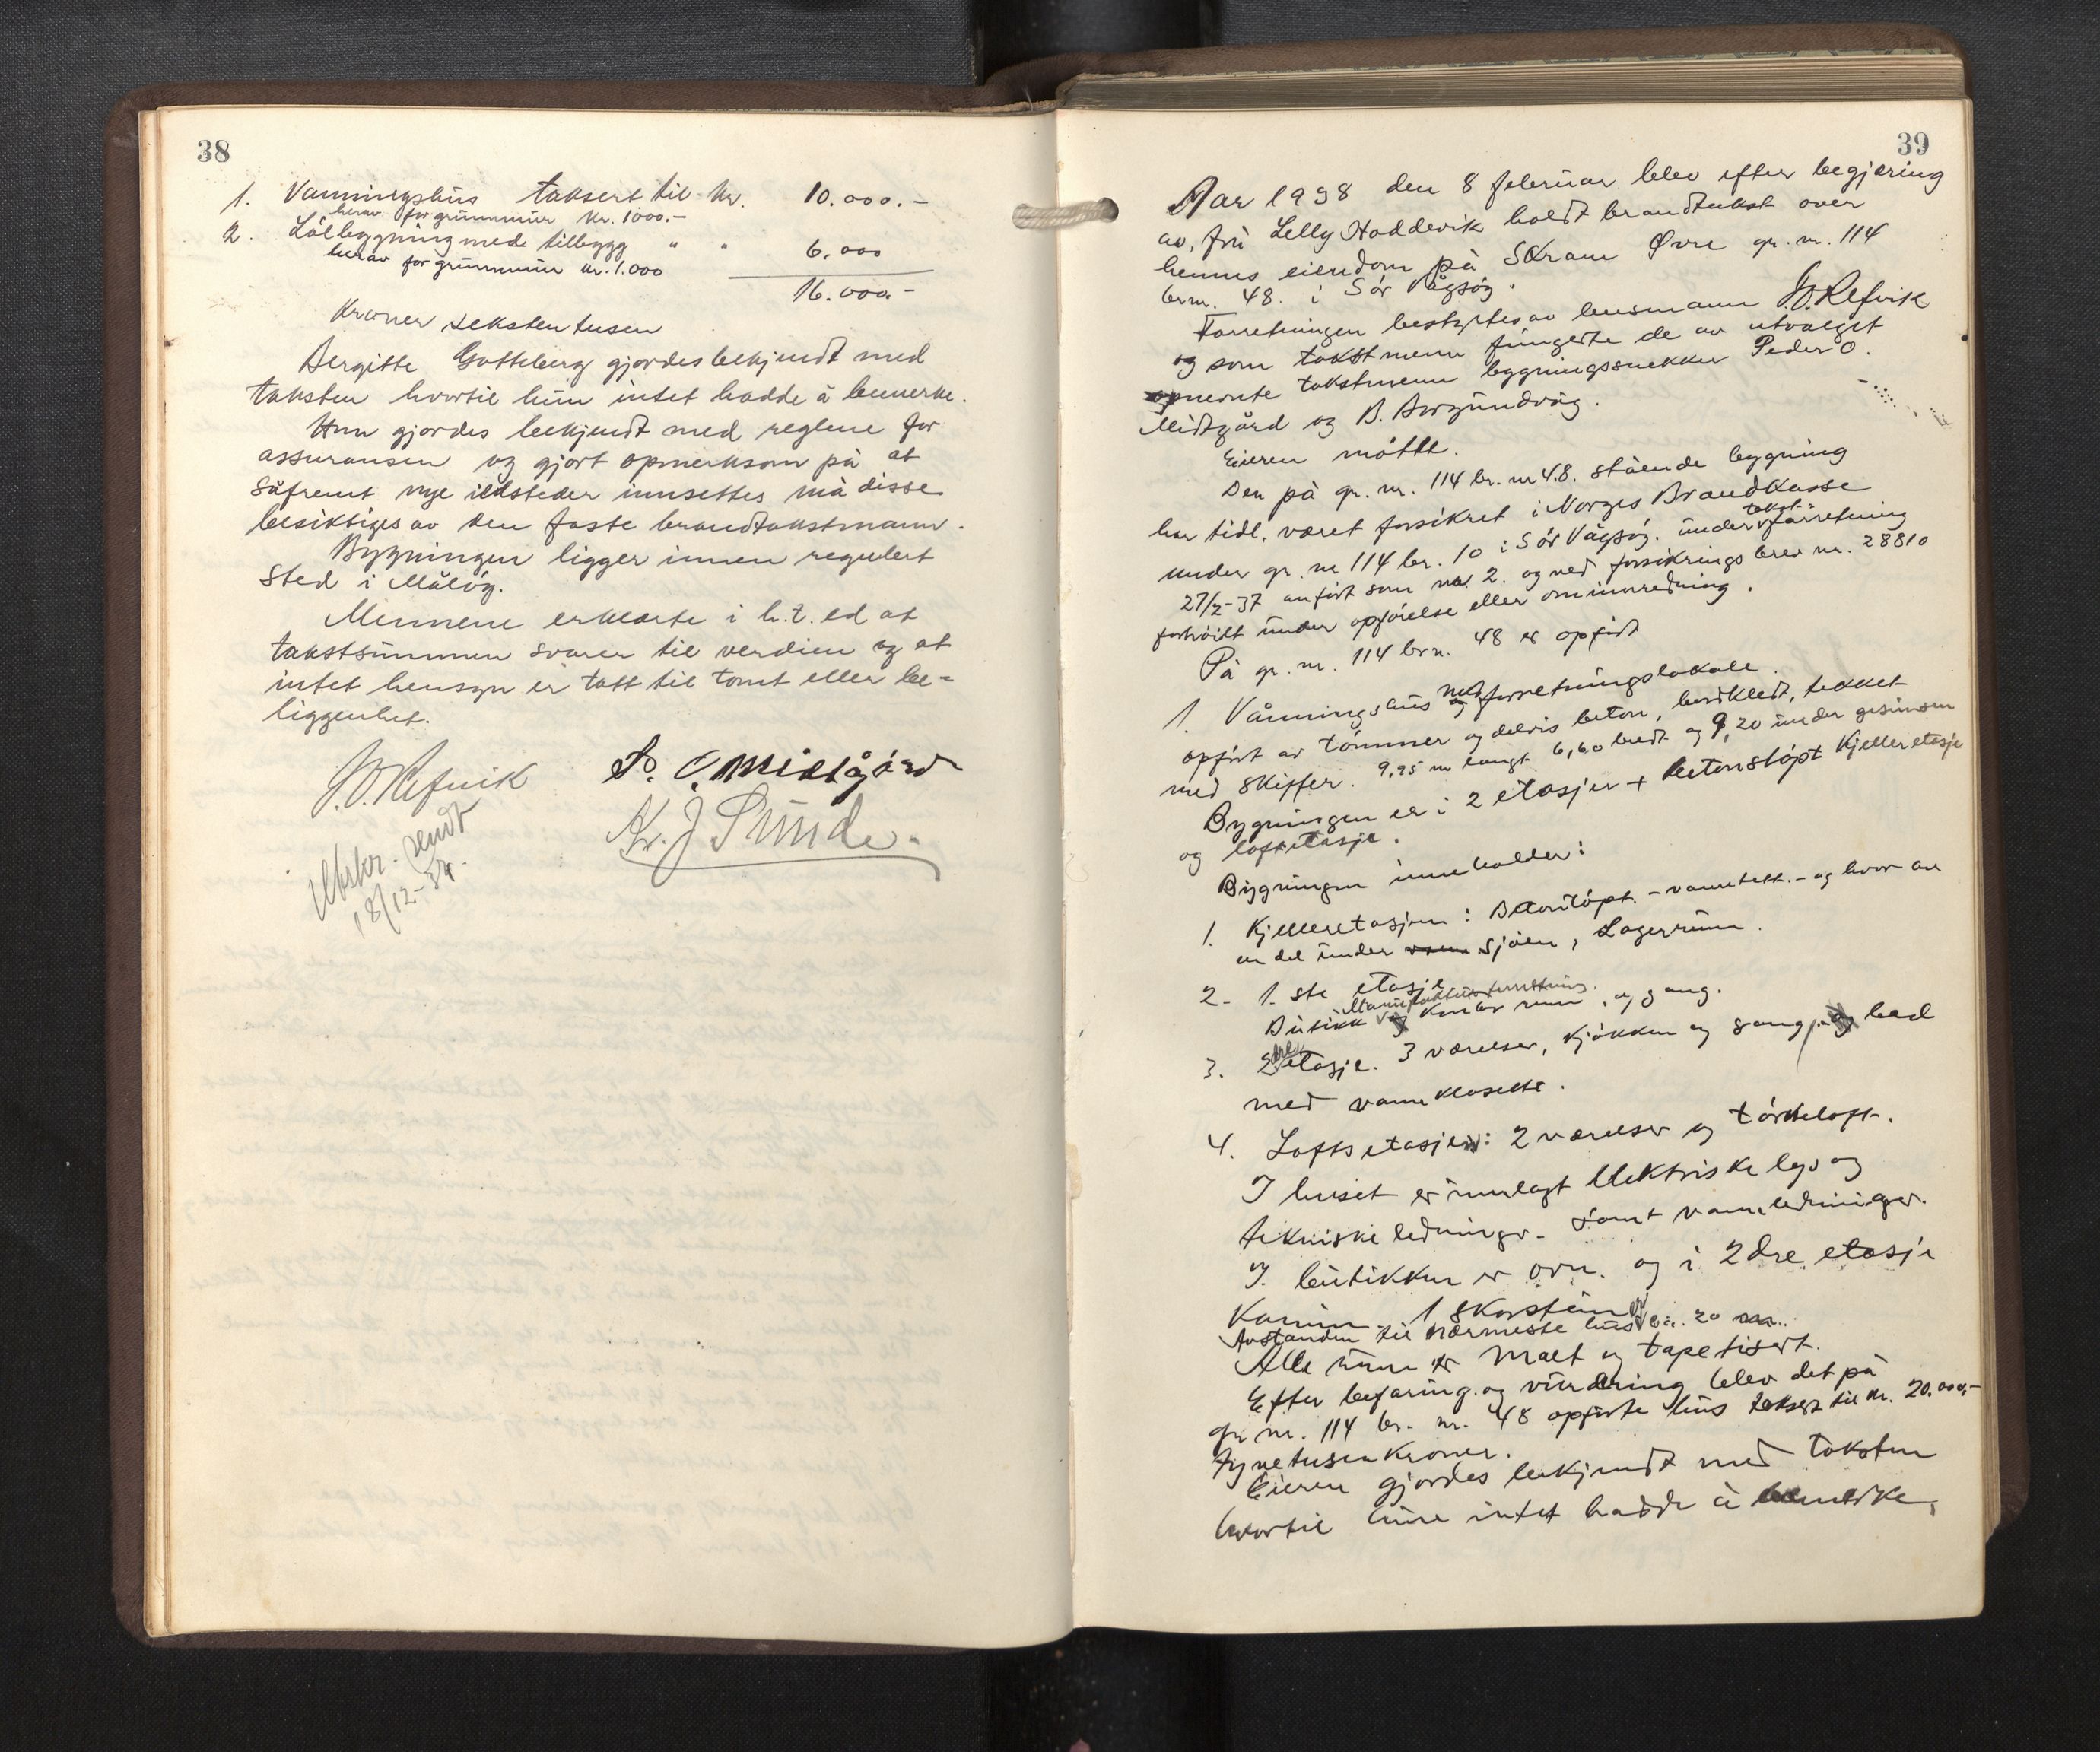 38
1. Vaaningshus taksert til kr. 10.000.-
herav for grunnmur kr. 1000.-
2. Løebygning med tilbygg " " 6.000
herav for grunnmur kr. 1.000
16.000.-
Kroner sekstentusen
Bergitte Gotteberg gjordes bekjendt med
taksten hvortil hun intet hadde å bemerke.
Hun gjordes bekjendt med reglene for
assuransen og gjort opmerksom på at
såfremt nye ildsteder innsettes må disse
besiktiges av den faste brandtakstmann.
Bygningen ligger innen regulert
sted i Måløy.
Mennene erklærte i h.t. ed at
takstsummen svarer til verdien og at
intet hensyn er tatt til tomt eller be-
liggenhet.
J.O. Refvik P. O. Midtgård
Kr. J Sunde.
Utskr. sendt
18/12-34.
39
Aar 1938 den 8 februar blev efter begjæring
av, fru Lelly Hoddevik holdt brandtakst over
hennes eiendom på Skram Øvre gr. nr. 114
brnr. 48. i Sør Vågsøy.
Forretningen bestyrtes av lensmann J.O. Refvik
og som takstmenn fungerte de av utvalget
opnevnte takstmenn bygningssnekker Peder O.
Midtgård og B. Borgundvåg.
Eieren møtte.
Den på gr. nr. 114 br. nr 48. stående bygning
har tidl. været forsikret i Norges Brandkasse
under gr. nr 114 br. 10 i Sør Vågsøy. under takst forretning
27/2-37 anført som nr 2. og ved forsikrings brev nr. 28810
forhøilt under opførelse eller ominnredning.
På gr. nr. 114 brn. 48 er opført
1. Våningshus med forretningslokale.
opført av tømmer og delvis beton, bordkledt, tekket
med skiffer. 9,95 m langt 6,60 bredt og 9,20 under gesimsen
Bygningen er i 2 etasjer + betonstøpt kjelleretasje
og loftsetasje.
Bygningen inneholder:
1. Kjelleretasjen: Betonstøpt. - vanntett. - og hvor av
en del under sjøen, Lagerrum.
2. 1. ste etasje
Manufakturforretning.
Butikk kontor rum, og gang.
3. 2dre etasje. 3 værelser, kjøkken og gang, bad
med vannklosett.
4. Loftsetasjen: 2 værelser og tørkeloft.
I huset er innlagt elektriske lys og
tekniske ledninger. samt vannledninger.
I butikken er ovn. og i 2dre etasje
Kamin. 1 skorstein
Avstanden til nærmeste hus er ca. 20 m.
Alle rum er malt og tapetisert.
Efter befaring og vurdering blev det på
gr nr. 114 br. nr. 48 opførte hus taksert til kr. 20.000,-
tyvetusen kroner.
Eieren gjordes bekjendt med taksten
hvortil hun intet hadde å bemerke,